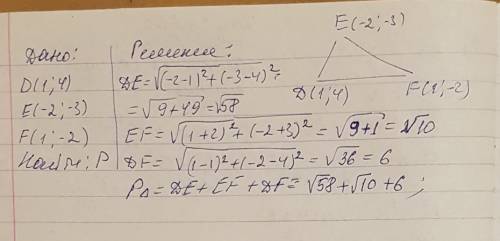 E(-2;-3)
Дано: Решение:
D(1;4) DE=√(-2-1)²+(-3-4)²=
D(1;4) F(1;-2)
E(-2;-3) =√9+49=√58
F(1;-2) EF=√(1+2)²+(-2+3)²=√9+1=√10
Найти: P DF=√(1-1)²+(-2-4)²=√36=6
P△=DE+EF+DF=√58+√10+6;